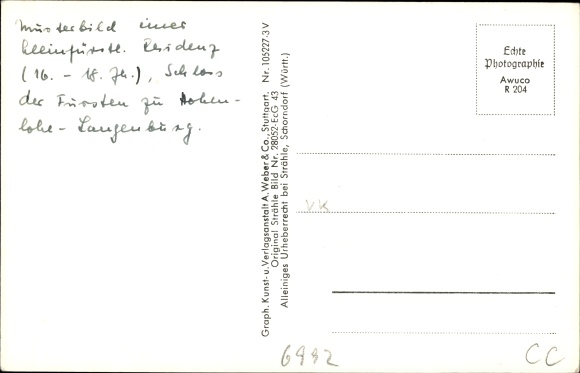 Musterbild einer
kleinfürstl. Residenz
(16. - 18. Jh.), Schloss
der Fürsten zu Hohen-
lohe - Langenburg.
Graph. Kunst- u. Verlagsanstalt A. Weber & Co., Stuttgart. Nr. 105227-3 V
Original Strähle Bild Nr. 28052-EcG 43
Alleiniges Urheberrecht bei Strähle, Schorndorf (Württ.)
Echte
Photographie
Awuco
R 204
VK
6992
CC